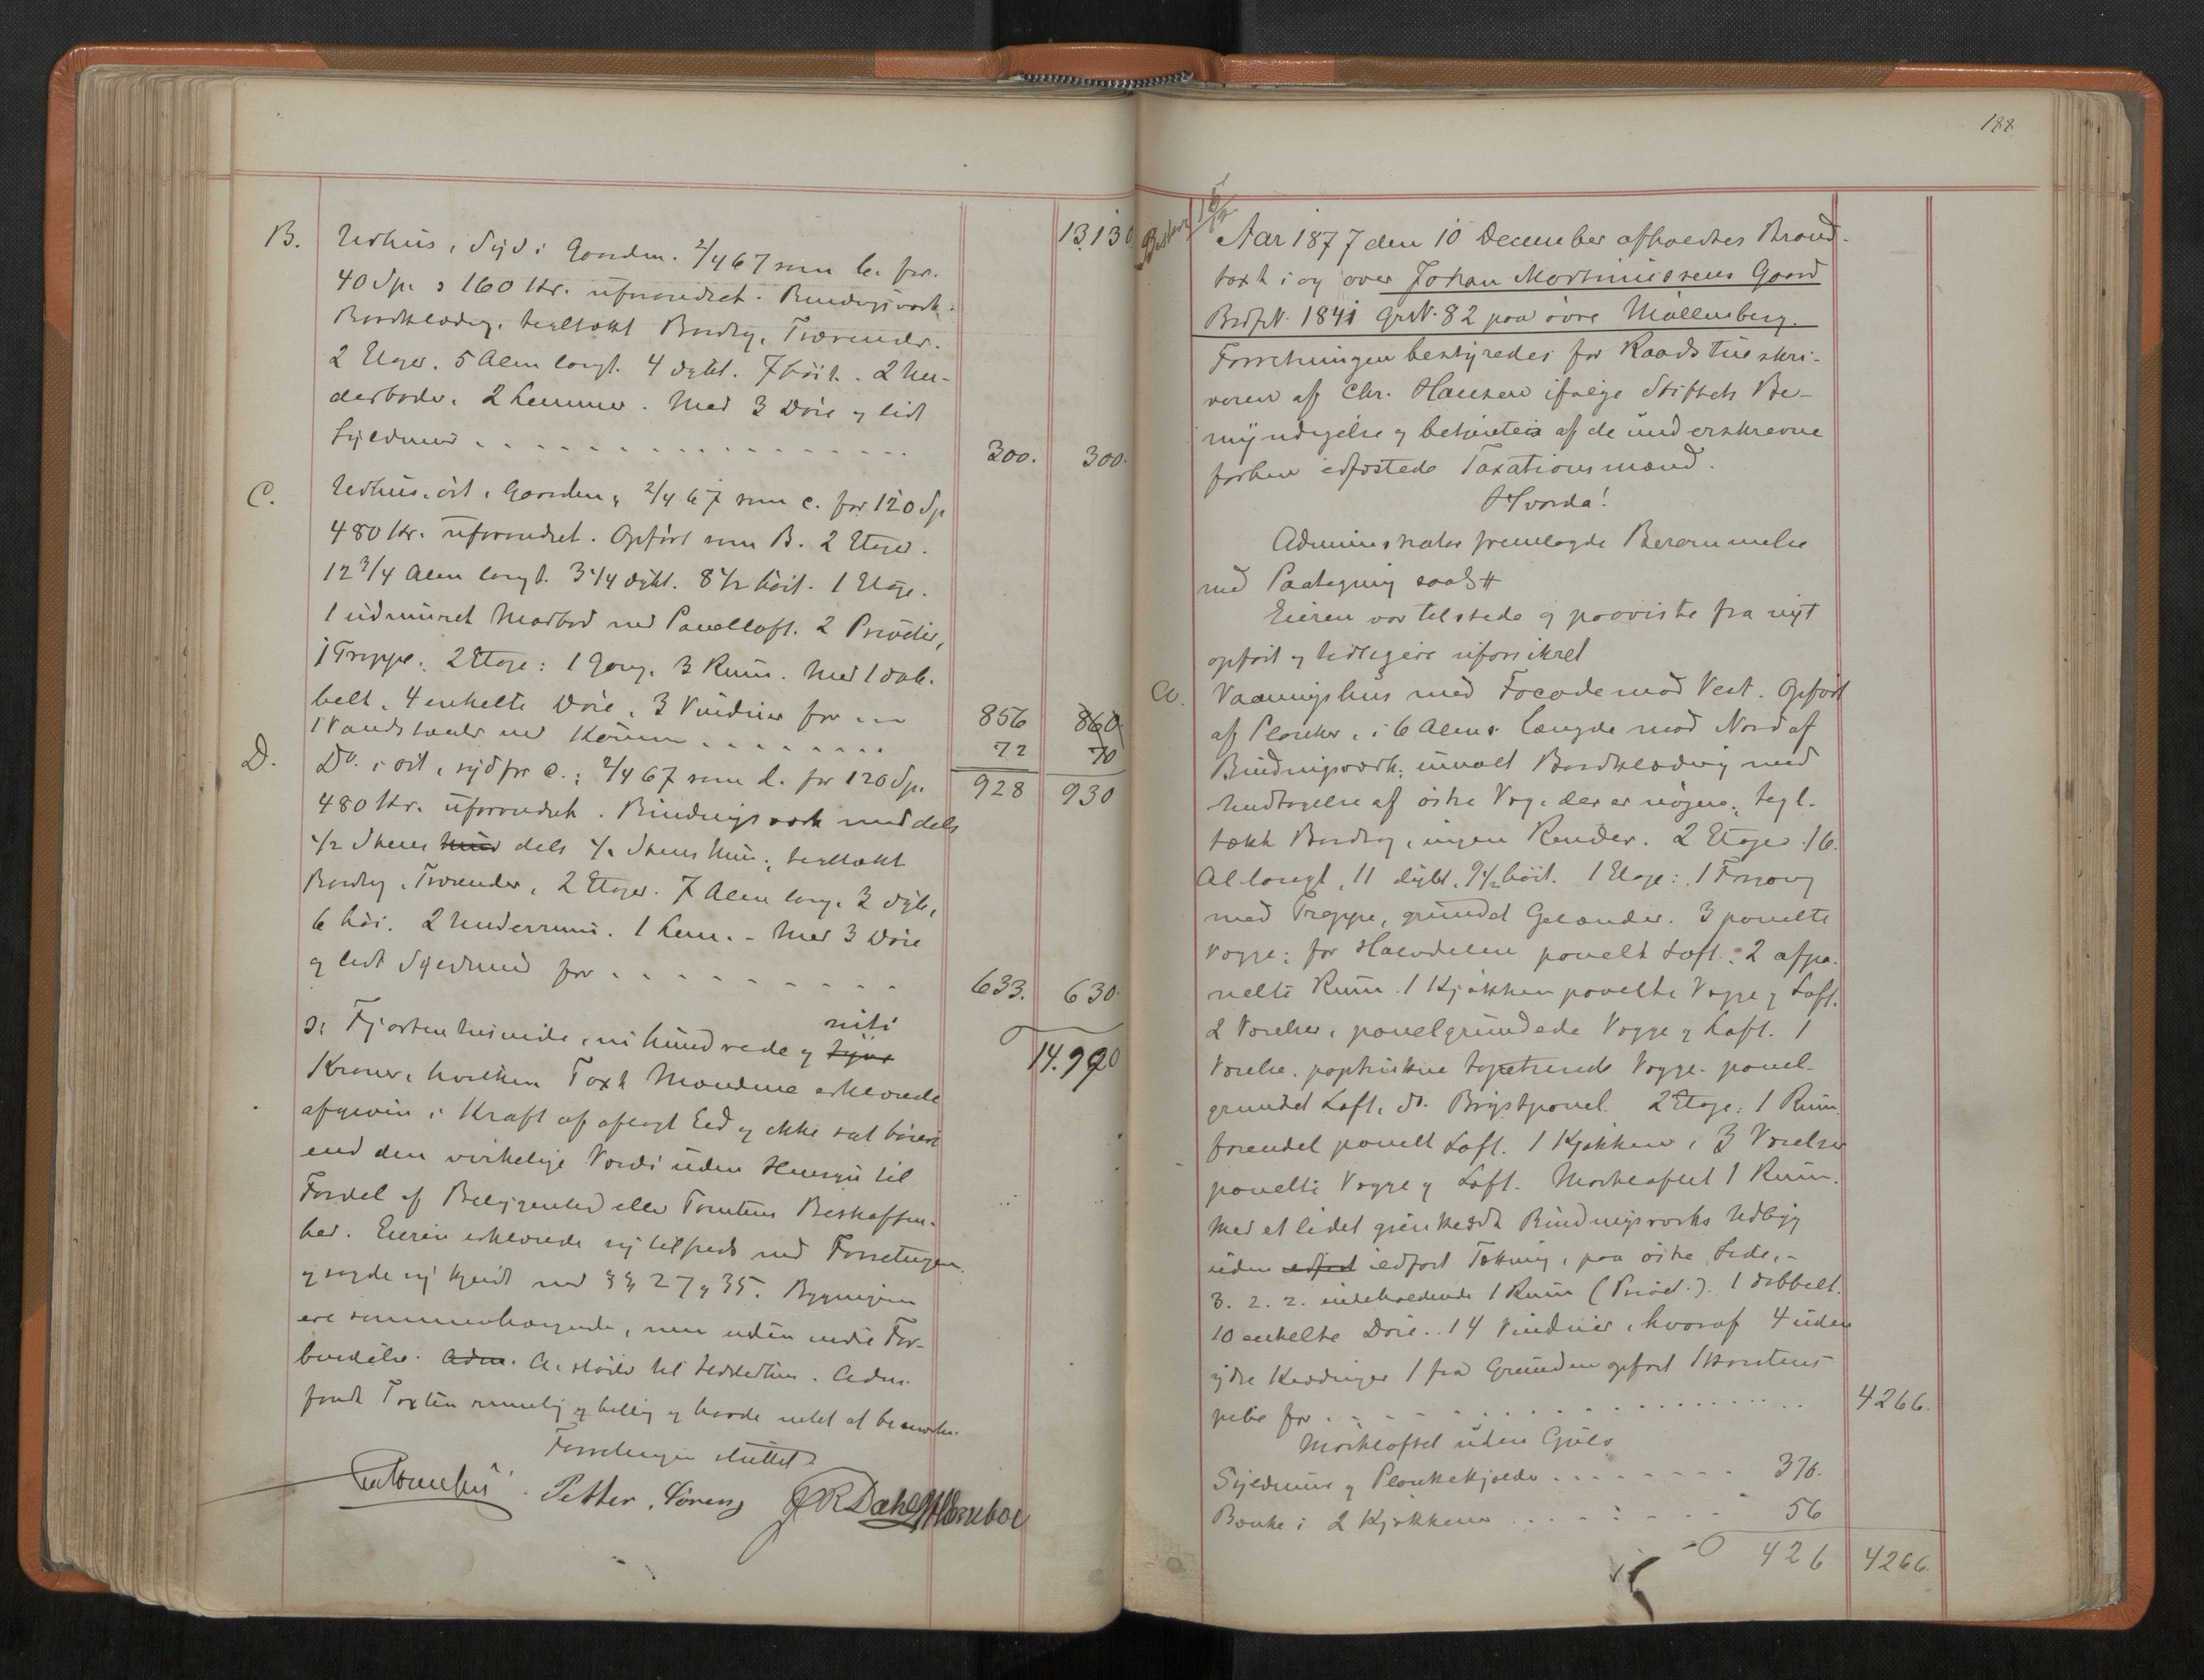 13.130
B. Udhus, Syd i Gaarden. 2/4 67 som b. for
40 Sp. ɔ 160 Kr. uforandret. Bindingsværk,
Bordklædng, tegltækt Bordtag, Trærender.
2 Etager. 5 Alen langt. 4 dybt. 7 höit. 2 Un-
derboder. 2 Lemmer. Med 3 Döre og lidt
Syldmur . . . 300. 300.
C. Udhus, öst i Gaarden, 2/4 67 som c. for 120 Sp
480 Kr. uforandret. Opfört som B. 2 Etager.
12 3/4 Alen langt. 3 1/4 dybt. 8 1/2 höit. 1 Etage.
1 udmuret Madbod med Panelloft. 2 Priveter,
1 Trappe. 2 Etage: 1 Gang. 3 Rum. Med 1 dob-
belt, 4 enkelte Döre, 3 Vinduer for 856 860
1 Vandskade med Kumme . . . 72 70
928 930
D. Do. i öst, syd for C.; 2/4 67 som d. for 120 Sp.
480 Kr. uforandret. Bindingsværk med dels
1/2 Stens Mur dels 1/1 Stens Mur, tegltækt
Bordtag, Trærender, 2 Etager. 7 Alen lang. 3 dyb,
6 höi. 2 Underrum. 1 Lem. - Med 3 Döre
og lidt Syldmur for . . . 633. 630.
niti
ɔ: Fjortentusinde, ni hundrede og tyve 14.990
Kroner, hvilken Taxt Mændene erklærede
afgiven i Kraft af aflagt Eed og ikke sat höiere
end den virkelige Værdi uden Hensyn til
Fordel af Beliggenhed eller Tomtens Beskaffen-
hed. Eieren erklærede sig tilfreds med Forretningen
og sagde sig kjendt med §§ 27 og 35. Bygningerne
ere sammenhængende, men uden indre For-
bindelse. Adm. A. stöder til . Adm.
fandt Taxten rimelig og billig og havde intet at bemærke.
Forretningen sluttet
Petter Sörens JR Dahl Hornboe
188
15/12
Aar 1877 den 10 December afholdtes Brand-
taxt i og over Johan Mortinussens Gaard
Brdf. N. 1841 Gr. N. 82 paa övre Möllenberg.
Forretningen bestyredes for Raadstueskri-
veren af Chr. Hansen ifölge Stiftets Be-
myndigelse og betjentes af de underskrevne
forhen edfæstede Taxationsmænd.
Hvorda!
Administrator fremlagde Berammelse
med Paategning saal.
Eieren var tilstede og paaviste fra nyt
opfört og tidligere uforsikret
A. Vaaningshus med Facade mod Vest. Opfört
af Planker, i 6 Alens Længde mod Nord af
Bindingsværk; umalt Bordklædning med
Undtagelse af östre Væg, der er nögen; tegl-
tækt Bordtag, ingen Render. 2 Etager. 16
Al. langt, 11 dybt, 9 1/2 höit. 1 Etage: 1 Forgang
med Trappe, grundet Gelænder. 3 panelte
Vægge; for Halvdelen panelt Loft. 2 afpa-
nelte Rum. 1 Kjökken panelte Vægge og Loft.
2 Værelser, panelgrundede Vægge og Loft. 1
Værelse, papstrukne tapetserede Vægge, panel-
grundet Loft, do. Brystpanel. 2 Etage: 1 Rum
forendel panelt Loft. 1 Kjökken, 3 Værelser
panelte Vægge og Loft. Mörkeloftet 1 Rum.
Med et lidet Bindingsværks Udbyg
uden ildfast Tækning, paa östre Side, -
3. 2. 2. indeholdende 1 Rum (Privet.). 1 dobbelt.
10 enkelte Döre. 14 Vinduer, hvoraf 4 uden
ydre Klædninger 1 fra Grunden opfört Skorstens-
pibe for . . . 4266.
Mörkloftet uden Gulv
Syldmur og Plankekjelder . . . 370.
Bænke i 2 Kjökkener . . . 56
426 4266.